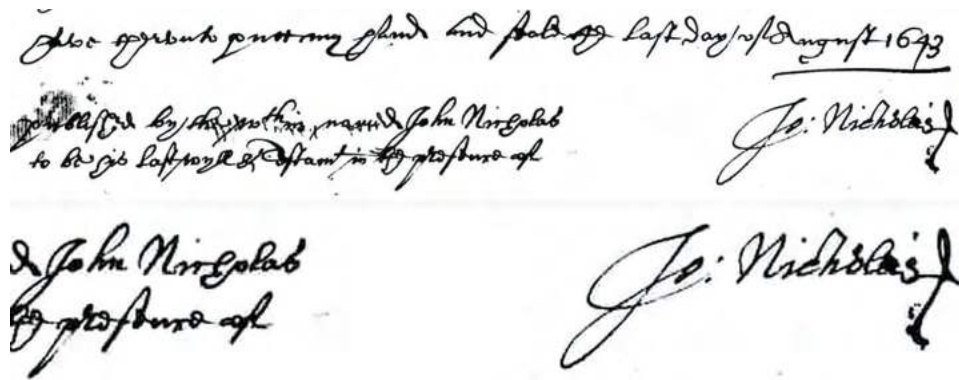 have hereunto putt my hand and seale the last day of August 1643
published by the within named John Nicholas
to be his last wyll & Testamt in the presence of
Jo: Nicholas
d John Nicholas
he presence of
Jo: Nicholas